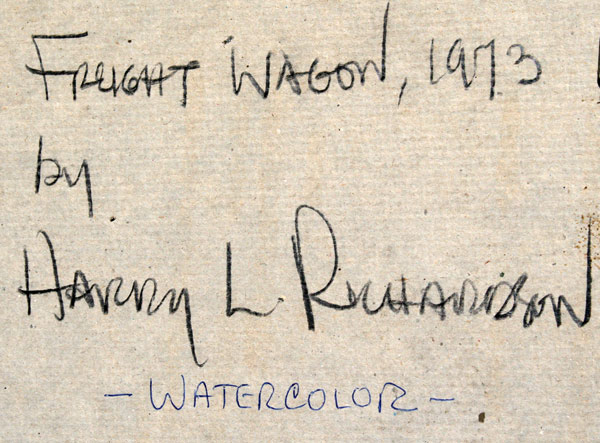 FREIGHT WAGON, 1973
by
HARRY L. RICHARDSON
- WATERCOLOR -